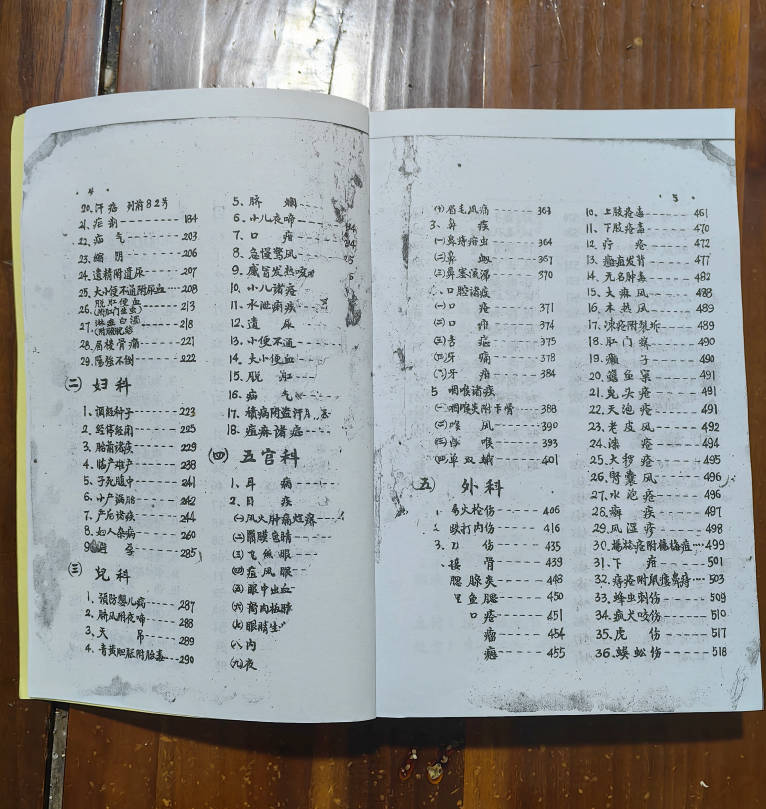 4
20. 汗癍 列前82号
21. 疟剳 184
22. 疝气 203
23. 缩阴 206
24. 遗精附遗尿 207
25. 大小便不通附尿血 208
26. 脱肛便血 (附肛门生虫) 213
27. 淋症白浊 218
28. 肩棱骨痛 221
29. 阳强不倒 222
(二) 妇科
1. 调经种子 223
2. 经停经闭 225
3. 胎前诸疾 229
4. 临产难产 238
5. 子死腹中 241
6. 小产漏胎 242
7. 产后诸疾 244
8. 妇人杂病 260
285
(三) 儿科
1. 预防婴儿病 287
2. 脐风附夜啼 288
3. 天吊 289
4. 青黄胆症附胎毒 290
5、脐烂
6、小儿夜啼
7、口疳
8、急慢惊风
9、感冒发热咳
10、小儿诸疳
11、水泄痢疾
12、遗尿
13、小便不通
14、大小便血
15、脱肛
16、疝气
17、积病附盗汗
18、痘麻诸症
(四) 五官科
1、耳病
2、目疾
(一)风火肿痛
(三)飞丝眼
(四)痘风眼
(五)眼中出血
(六)胬肉
(七)眼睛生
(八)内
(九)夜
5
(十)眉毛风痛 363
3、鼻疾
(一)鼻痔疳虫 364
(二)鼻衄 367
(三)鼻塞流涕 370
口腔诸疾
(一)口疮 371
(二)口 374
(三)舌症 375
(四)牙痛 378
牙疳 384
5 咽喉诸疾
(一)咽喉炎附卡骨 388
(二)喉风 390
喉 393
(四)单双蛾 401
(五) 外科
火枪伤 406
跌打内伤 416
3. 刀伤 435
接骨 439
腮腺炎 448
鱼腮 450
口疮 451
瘤 454
455
10、上肢疮毒 461
11、下肢疮毒 470
12、疔疮 472
13、痈疽发背 477
14、无名肿毒 482
15、大麻风 488
16、木热风 489
17、冻疮附裂坼 489
18、肛门痒 490
19、癞子 490
20、鳝鱼窠 491
21、鬼头疮 491
22、天泡疮 491
23、老皮风 492
24、漆疮 494
25、大秽疮 495
26、肾囊风 496
27、水泡疮 496
28、癣疾 497
29、风湿疹 498
30、杨梅疮附杨梅痘 499
31、下疳 501
32、痔疮附 503
33、蜂虫刺伤 509
34、疯犬咬伤 510
35、虎伤 517
36、蜈蚣伤 518